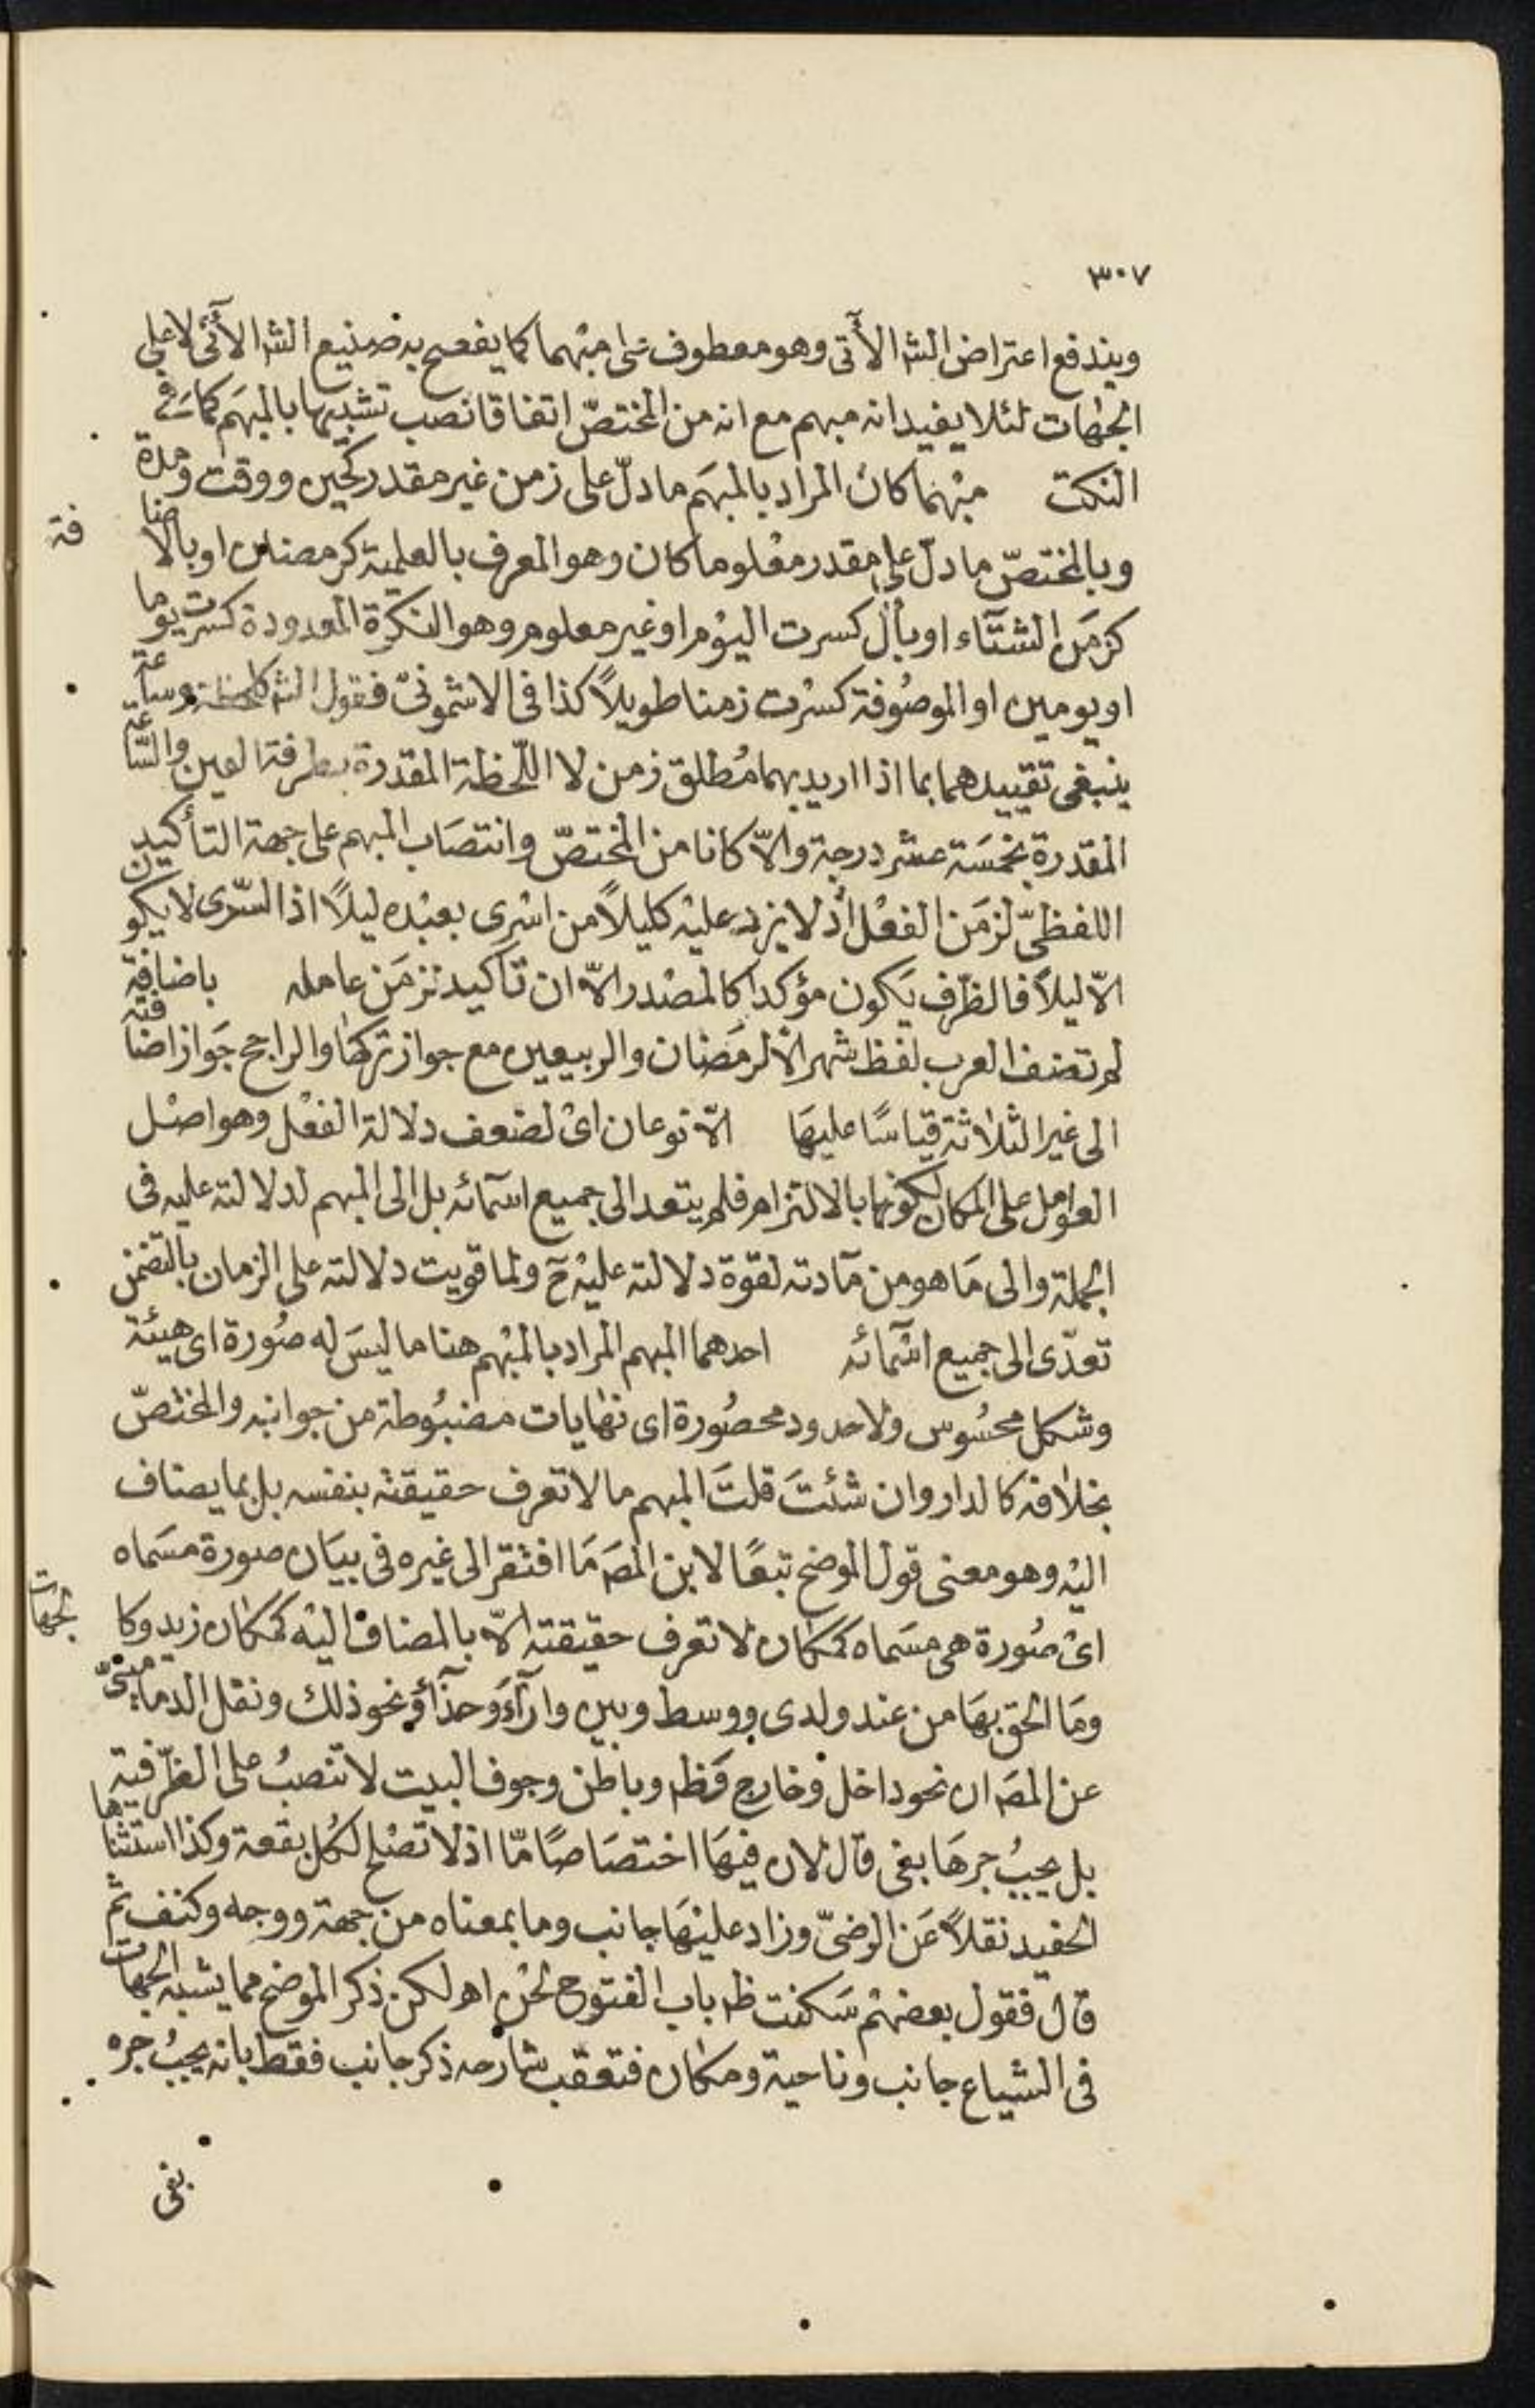 ٣٠٧
ويندفع اعتراض الشہ الأتى وهو معطوف على مبهما كما يفصح به صنيع الشہ الأتى لا على
الجهات لئلا يفيد انه مبهم مع انه من المختصّ اتفاقا نصب تشبيها بالمبهَم كما فى
النكت مبْهما كان المراد بالمبهَم ما دلّ على زمن غير مقدر كحين ووقت ومدة
وبالمختصّ ما دلّ على مقدر معْلوما كان وهو المعرف بالعلمية كرمضان او بالاضا
فة
كزمَن الشتآء او بأل كسرت اليوْم او غير معلوم وهو النكرة المعدودة كسرت يوما
او يومين او الموصُوفة كسْرت زمنا طويلاً كذا فى الاشمونىّ فقول الشہ كلحظة وساعة
ينبغى تقييدهما بما اذا اريد بهما مُطلق زمن لا اللّحظة المقدرة بطرفة العين والسّاعة
المقدرة بخمسَة عشر درجة والاّ كانا من المختصّ وانتصَاب المبهم على جهة التأكيد
اللفظىّ لزمَن الفعْل اذ لا يزيد عليْه كليلاً من اسْرى بعبْده ليلاً اذ السّرى لا يكون
الاّ ليلاً فالظّرف يَكون مؤكدا كالمصْدر الاّ ان تأكيده لزمَن عامله باضافة
لم تضف العرب لفظ شهر الاّ لرمَضان والربيعين مع جواز تركهَا والراجح جَواز اضافته
الى غير الثلاثة قياسًا عليهَا الاّ نوعان اىْ لضعف دلالة الفعْل وهو اصْل
العوامل على المكان لكونها بالالتزام فلم يتعد الى جميع اسمآئه بل الى المبهم لدلالته عليه فى
الجملة والى مَا هو من مآدته لقوة دلالته عليْه حَ ولما قويت دلالته على الزمان بالتضمن
تعدّى الى جميع اسْمآئه احدهما المبهم المراد بالمبْهم هنا ما ليسَ له صُورة اى هيئة
وشكل محسُوس ولا حدود محصُورة اى نهَايات مضبُوطة من جوانبه والمختصّ
بخلافه كالدار وان شئتَ قلتَ المبهم ما لا تعرف حقيقته بنفسه بل بما يضاف
اليْه وهو معنى قول الموضح تبعًا لابن المصہ مَا افتقر الى غيره فى بيَان صورة مسَماه
اىْ صُورة هى مسَماه كمكان لا تعرف حقيقته الاّ بالمضاف اليْه كمكان زيد وكا
لجهات
ومَا الحق بهَا من عند ولدى ووسط وبين وازآء وحذآء ونحو ذلك ونقل الدمامينىّ
عن المصہ ان نحو داخل وخارج وظہ وباطن وجوف البيت لا تنصبُ على الظّرفية
بل يجبُ جرهَا بفى قال لان فيهَا اختصَاصًا مّا اذ لا تصْلح لكُل بقعة وكذا استثناها
الحفيد نقلاً عَن الرضىّ وزاد عليْهَا جانب وما بمعناه من جهة ووجه وكنف ثم
قال فقول بعضهْم سَكنت ظہ باب الفتوح لحْن اهـ لكن ذكر الموضح مما يشبه الجهات
فى الشياع جانب وناحية ومكان فتعقب شارحه ذكر جانب فقط بانه يجبُ جره
بفى